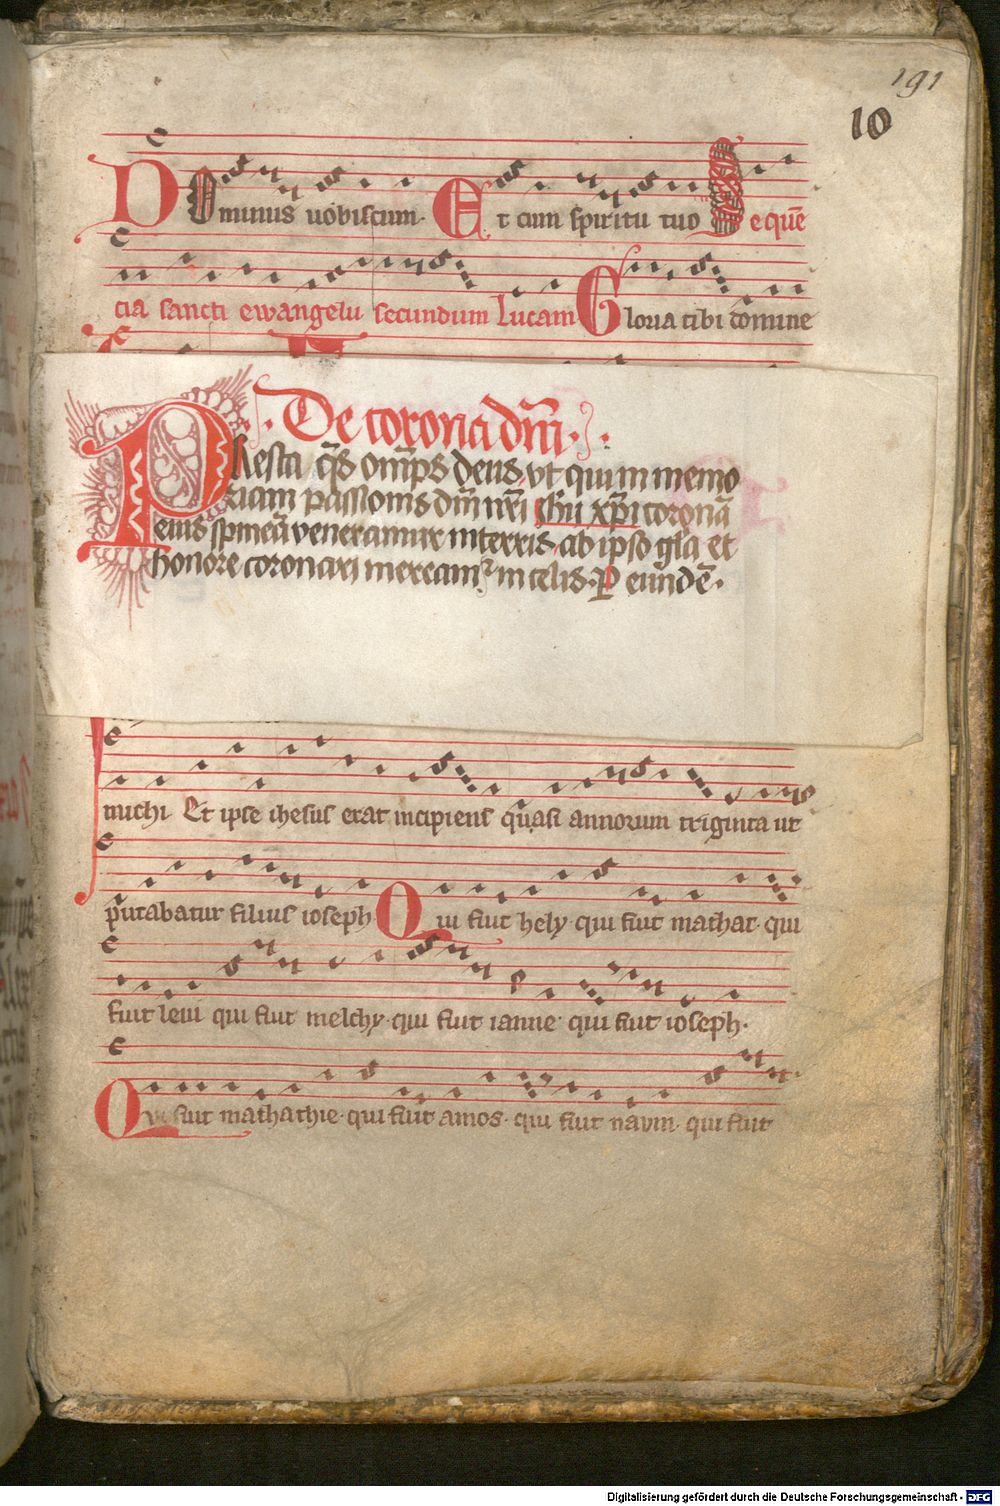 191
10
Dominus vobiscum. Et cum spiritu tuo Seque̅
cia sancti ewangelii secundum Lucam Gloria tibi domine
De corona dm̅i.
Praesta q̅s om̅ps deus, vt qui in memo
riam passionis dm̅i nr̅i ihu̅ xp̅i corona̅
eius spinea̅ veneramur in terris, ab ipso gl̅a et
honore coronari mereamr in celis. P eunde̅.
michi Et ipse ihesus erat incipiens quasi annorum triginta ut
putabatur filius ioseph Qui fuit hely. qui fuit mathat. qui
fuit leui qui fuit melchy. qui fuit ianne. qui fuit ioseph.
Qui fuit mathathie. qui fuit amos. qui fuit navm. qui fuit
Digitalisierung gefördert durch die Deutsche Forschungsgemeinschaft - DFG